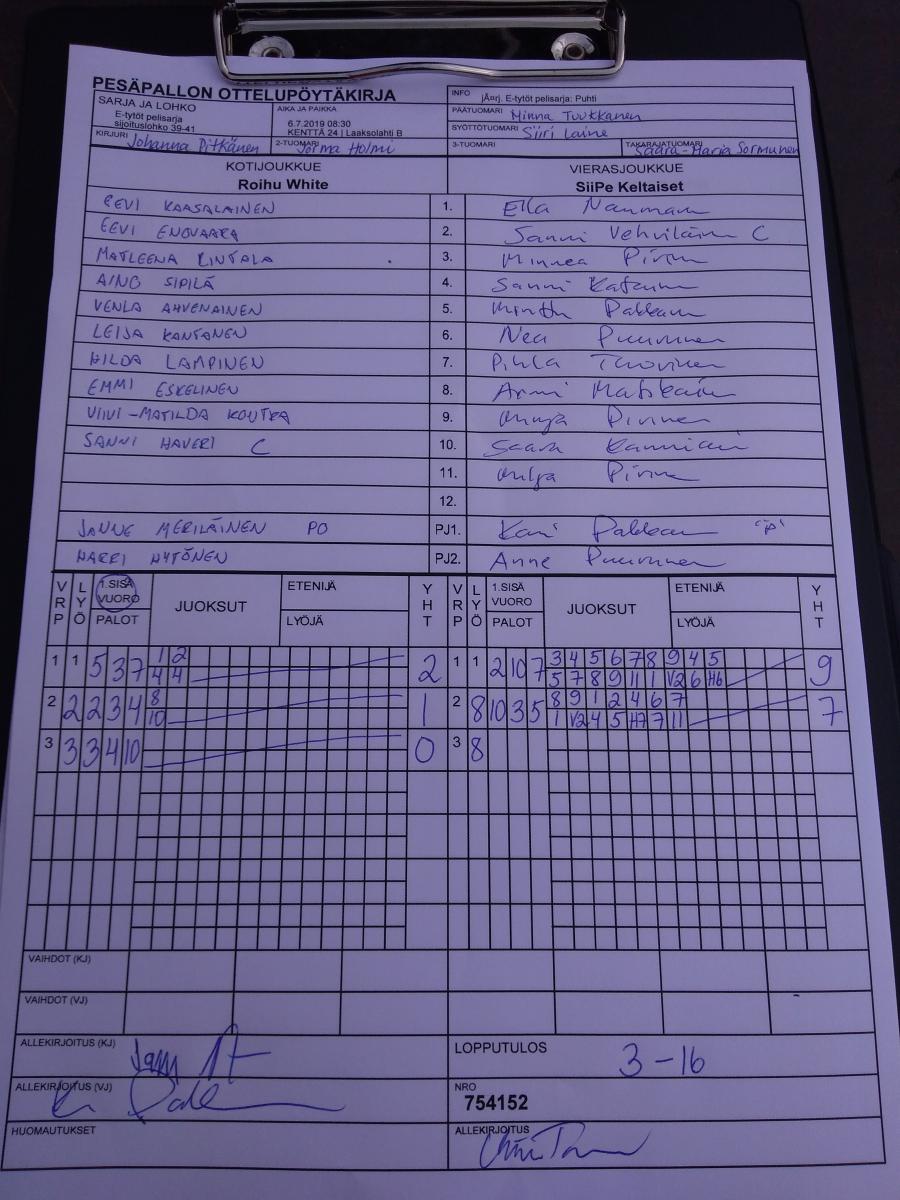 PESÄPALLON OTTELUPÖYTÄKIRJA
SARJA JA LOHKO
E-tytöt pelisarja
sijoituslohko 39-41
AIKA JA PAIKKA
6.7.2019 08:30
KENTTÄ 24 | Laaksolahti B
INFO jÄrj. E-tytöt pelisarja: Puhti
PÄÄTUOMARI Minna Tuukkanen
SYÖTTÖTUOMARI Siiri Laine
KIRJURI Johanna Pitkänen
2-TUOMARI Jorma Holmi
3-TUOMARI
TAKARAJATUOMARI Saara-Maria Sormunen
KOTIJOUKKUE
Roihu White
VIERASJOUKKUE
SiiPe Keltaiset
EEVI KAASALAINEN 1. Ella
EEVI ENOVAARA 2. Sanni Vehviläinen C
MATLEENA RINTALA 3. Minnea Pirinen
AINO SIPILÄ 4. Sanni
VENLA AHVENAINEN 5. Minttu
LEIJA KANTANEN 6. Nea Puurunen
HILDA LAMPINEN 7. Pihla Tuovinen
EMMI ESKELINEN 8. Armi
VIIVI-MATILDA KOUTRA 9. Pirinen
SANNI HAVERI C 10. Saara
11. Pirinen
12.
JANNE MERILÄINEN PO PJ1. "P"
HARRI HYTÖNEN PJ2. Anne Puurunen
VRP LYÖ 1.SISÄ VUORO PALOT JUOKSUT ETENIJÄ LYÖJÄ YHT VRP LYÖ 1.SISÄ VUORO PALOT JUOKSUT ETENIJÄ LYÖJÄ YHT
1 1 5 3 7 1 2 2 1 1 2 10 7 3 4 5 6 7 8 9 4 5 9
4 4 5 7 8 9 11 1 V2 6 H6
2 2 2 3 4 8 1 2 8 10 3 5 8 9 1 2 4 6 7 7
10 1 V2 4 5 H7 7 11
3 3 3 4 10 0 3 8
VAIHDOT (KJ)
VAIHDOT (VJ)
ALLEKIRJOITUS (KJ)
LOPPUTULOS 3-16
ALLEKIRJOITUS (VJ)
NRO
754152
HUOMAUTUKSET
ALLEKIRJOITUS